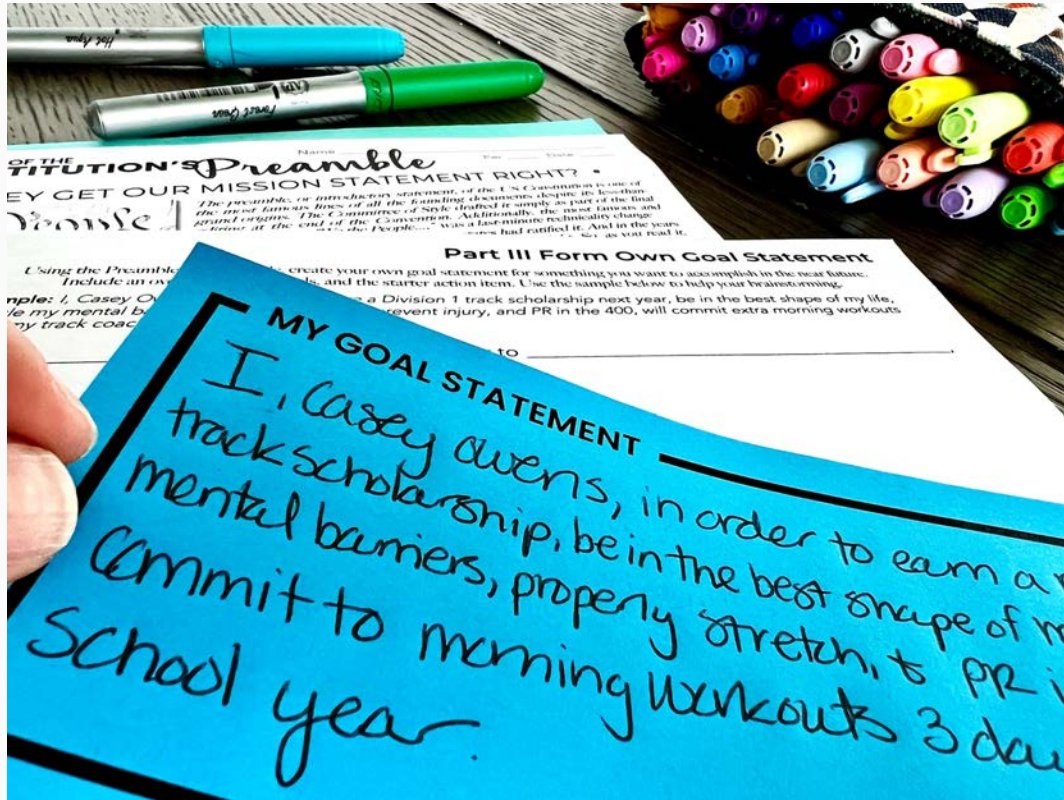 Hot Aqua
Forest Green
OF THE
TITUTION'S Preamble
Name
Per Date
EY GET OUR MISSION STATEMENT RIGHT?
People
The preamble, or introductory statement, of the US Constitution is one of
the most famous lines of all the founding documents despite its less-than-
grand origins. The Committee of Style drafted it simply as part of the final
editing at the end of the Convention. Additionally, the most famous and
the People...." was a last-minute technicality change
had ratified it. And in the years
as you read it,
Part III Form Own Goal Statement
Using the Preamble create your own goal statement for something you want to accomplish in the near future.
Include an and the starter action item. Use the sample below to help your brainstorming.
mple: I, Casey a Division 1 track scholarship next year, be in the best shape of my life,
my mental revent injury, and PR in the 400, will commit extra morning workouts
my track
to
MY GOAL STATEMENT
I, Casey Owens, in order to earn a
track scholarship, be in the best shape of m
mental barriers, properly stretch, & PR i
commit to morning workouts 3 da
school year.